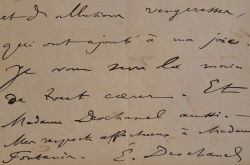 et d'allusions vengeresses,
qui ont ajouté à ma joie
Je vous serre la main
de tout cœur. Et
Madame Deschanel aussi. —
Mes respects affectueux à Madame
Fontanin. É. Deschanel